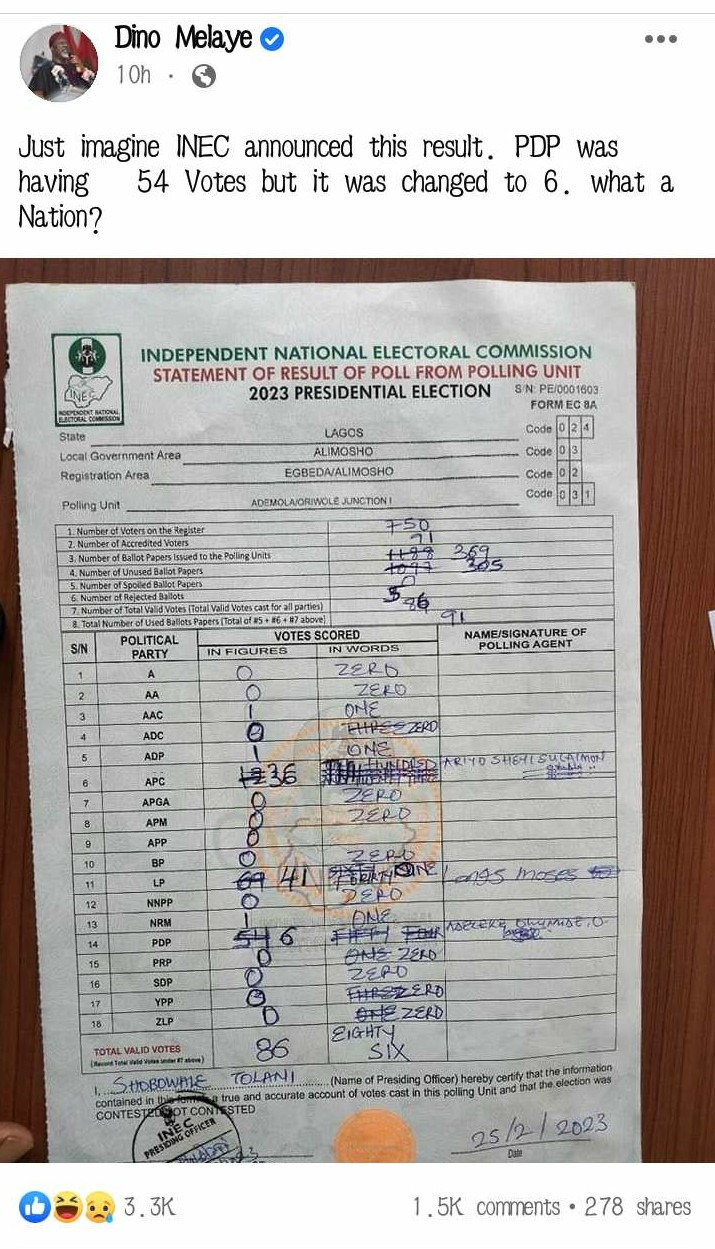 Dino Melaye
10h ·
Just imagine INEC announced this result. PDP was
having 54 Votes but it was changed to 6. what a
Nation?
INDEPENDENT NATIONAL ELECTORAL COMMISSION
STATEMENT OF RESULT OF POLL FROM POLLING UNIT
2023 PRESIDENTIAL ELECTION S/N: PE/0001603
FORM EC 8A
INEC
INDEPENDENT NATIONAL
ELECTORAL COMMISSION
State LAGOS Code 0 2 4
Local Government Area ALIMOSHO Code 0 3
Registration Area EGBEDA/ALIMOSHO Code 0 2
Polling Unit ADEMOLA/ORIWOLE JUNCTION I Code 0 3 1
1. Number of Voters on the Register 750
2. Number of Accredited Voters 91
3. Number of Ballot Papers Issued to the Polling Units 1188 369
4. Number of Unused Ballot Papers 1097 305
5. Number of Spoiled Ballot Papers 0
6. Number of Rejected Ballots 5
7. Number of Total Valid Votes (Total Valid Votes cast for all parties) 86
8. Total Number of Used Ballots Papers (Total of #5 + #6 + #7 above) 91
S/N POLITICAL PARTY VOTES SCORED NAME/SIGNATURE OF POLLING AGENT
IN FIGURES IN WORDS
1 A 0 ZERO
2 AA 0 ZERO
3 AAC 1 ONE
4 ADC 0 THREE ZERO
5 ADP 1 ONE
6 APC 36 HUNDRED ARIYO SHEYI SULAIMON
7 APGA 0 ZERO
8 APM 0 ZERO
9 APP 0
10 BP 0 ZERO
11 LP 69 41 FORTY ONE Moses
12 NNPP 0 ZERO
13 NRM 1 ONE
14 PDP 54 6 FIFTY FOUR ADELEKE
15 PRP 0 ONE ZERO
16 SDP 0 ZERO
17 YPP 0 THREE ZERO
18 ZLP 0 ONE ZERO
TOTAL VALID VOTES 86 EIGHTY SIX
(Record Total Valid Votes under #7 above)
I, SHOBOWALE TOLANI (Name of Presiding Officer) hereby certify that the information
contained in this form is a true and accurate account of votes cast in this polling Unit and that the election was
CONTESTED/NOT CONTESTED
INEC
PRESIDING OFFICER
25/2/2023
Date
3.3K 1.5K comments • 278 shares